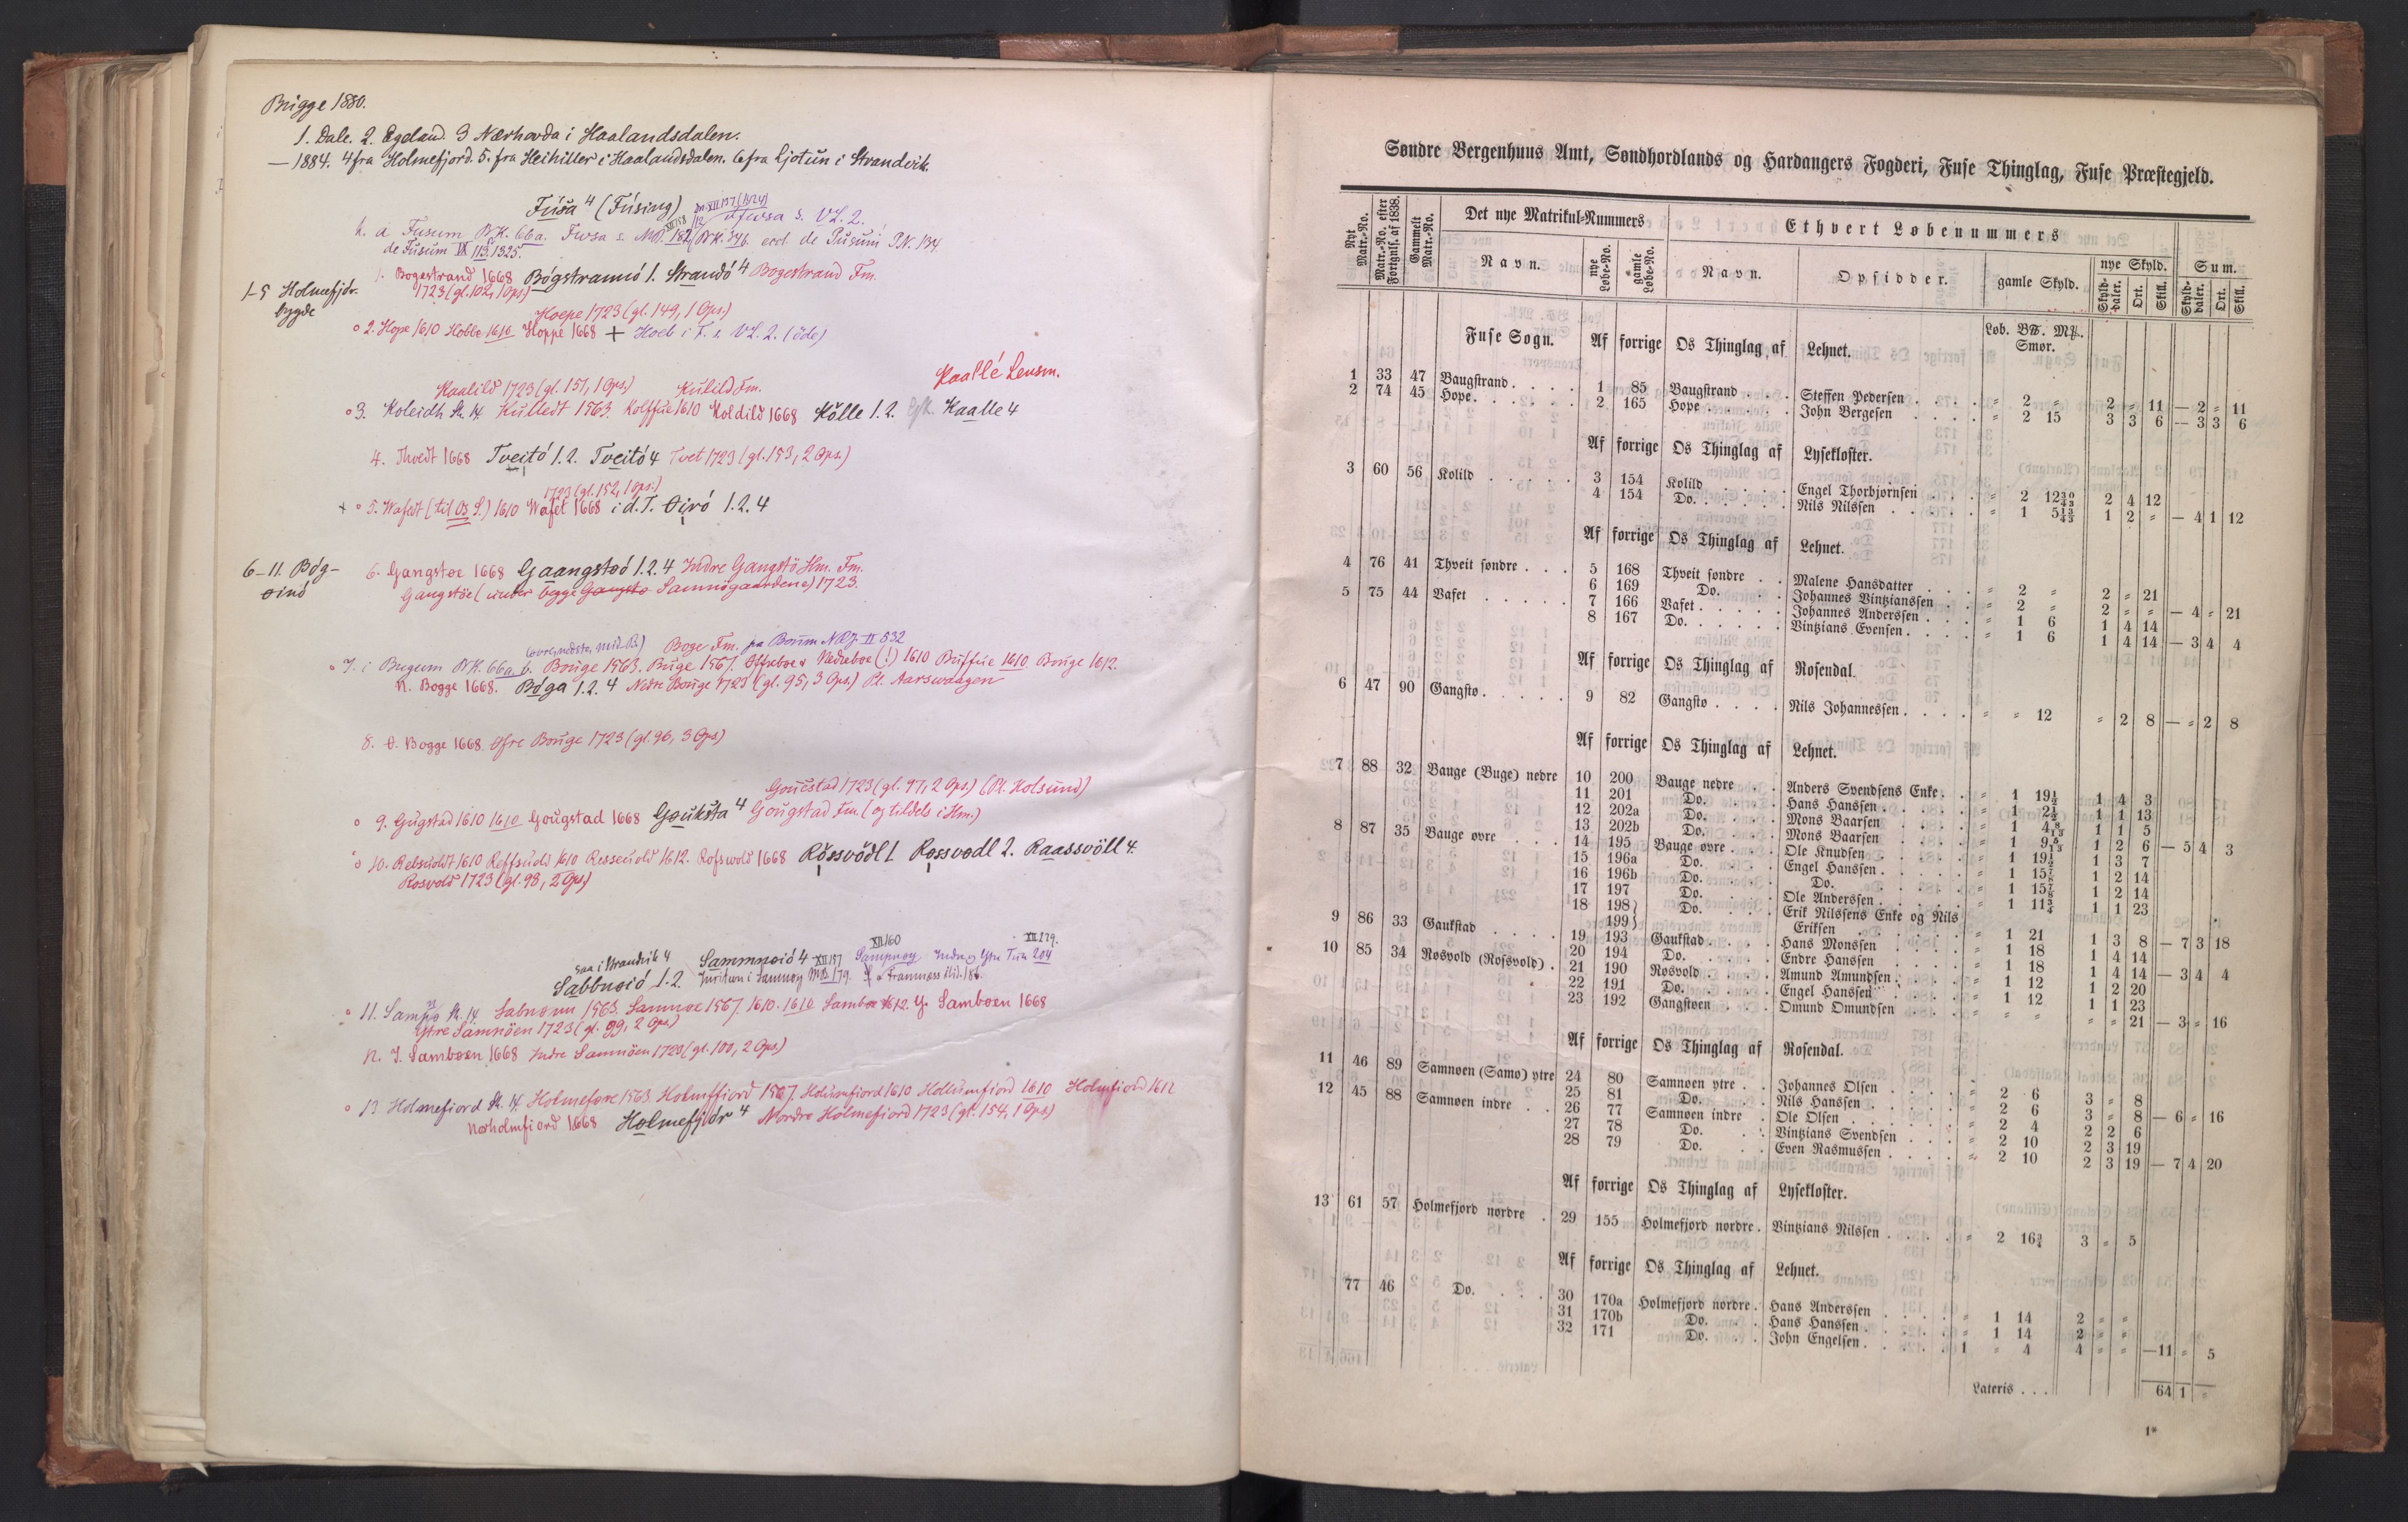 Brigge 1880.
1. Dale. 2. Egeland. 3 Nærhovda i Haalandsdalen.
— 1884. 4 fra Holmefjord. 5. fra Heihiller i Haalandsdalen. 6 fra Ljotun i Strandvik.
Fúsa 4 (Fúsing)
k. a Fusum BK. 66a. Fusa s. VL. 2.
de Fusum IX 113. 1325.
1-5 Holmefjdr.bygde
1. Bogestrand 1668 Bógstrannó 1. Strandó 4 Bogestrand Fm.
1723 (gl. 102, 1 Ops.)
Hoepe 1723 (gl. 149, 1 Ops.)
2. Hope 1610 Hobbe 1610 Hoppe 1668 + Hoeb i F. s. VL. 2. (öde)
Kaallé Lensm.
Kaalild 1723 (gl. 151, 1 Ops.) Kulild Fm.
3. Koleidh St. 14. Kulledt 1563. Kolffue 1610 Koldild 1668 Kölle 1. 2. Kaalle 4
4. Thvedt 1668 Tveitó 1. 2. Tveitó 4 Tvet 1723 (gl. 153, 2 Ops.)
1723 (gl. 152, 1 Ops.)
5. Wafedt (til Os S.) 1610 Wafet 1668 i d. T. Øiró 1. 2. 4
6-11. Bög-öinó
6. Gangstøe 1668 Gaangstoó 1. 2. 4 Indre Gangstö Hm. Fm.
Gangstöe (under begge Gangstø Samnøgaardene) 1723.
Boge Fm. pa Boum NRJ. II 532
7. i Bugum BK. 66a. b. Bouge 1563. Buge 1567. Offreboe & Nedreboe (!) 1610 Buffue 1610. Bouge 1612.
N. Bogge 1668. Bóga 1. 2. 4 Nedre Bouge 1723 (gl. 95, 3 Ops.) Pl. Aarsvaagen
8. Ø. Bogge 1668. Öfre Bouge 1723 (gl. 96, 3 Ops.)
Gouestad 1723 (gl. 97, 2 Ops.) (Pl. Holsund)
9. Gugstad 1610 1610 Gougstad 1668 Gouksta 4 Gougstad Fm. (og tildels i Hm.)
10. Rebsuoldt 1610 Reffsuold 1610 Resseuold 1612. Rofswold 1668 Rössvödl 1. Rossvodl 2. Raassvöll 4.
Rosvold 1723 (gl. 98, 2 Ops.)
saa i Strandvik 4 Sammnoió 4 XII 157 XII 160 XII 179.
Sabbnoió 1. 2.
11. Sampø St. 14. Sabnønn 1563. Samnøe 1567. 1610. 1610 Sambøe 1612. Y. Samboen 1668
Ytre Samnöen 1723 (gl. 99, 2 Ops.)
12. I. Samboen 1668 Indre Samnöen 1723 (gl. 100, 2 Ops.)
13. Holmefiord St. 14. Holmefore 1563. Holmffiord 1567. Holumfiord 1610 Hollumfiord 1610 Holmfiord 1612
Norholmfiord 1668 Holmefjidr 4 Nordre Holmefiord 1723 (gl. 154, 1 Ops)
Søndre Bergenhuus Amt, Søndhordlands og Hardangers Fogderi, Fuse Thinglag, Fuse Præstegjeld.
Nyt Matr.-No. | Matr.-No. efter Fortgnls. af 1838. | Gammelt Matr.-No. | Det nye Matrikul-Nummers | Ethvert Løbenummers
Navn. | nye Løbe-No. | gamle Løbe-No. | Navn. | Opsidder. | gamle Skyld. | nye Skyld. | Sum.
Skylddaler. | Ort. | Skill. | Skylddaler. | Ort. | Skill.
Løb. B℔. Mk. Smør.
Fuse Sogn. Af forrige Os Thinglag af Lehnet.
1 33 47 Baugstrand . . . . 1 85 Baugstrand . . . Steffen Pedersen . . . . " 2 " 2 " 11 — 2 " 11
2 74 45 Hope . . . . . . 2 165 Hope . . . . . . John Bergesen . . . . " 2 15 3 3 6 — 3 3 6
Af forrige Os Thinglag af Lysekloster.
3 60 56 Kolild . . . . . 3 154 Kolild . . . . . Engel Thorbjørnsen . . . " 2 12 30/43 2 4 12
4 154 Do. . . . . . Nils Nilssen . . . . . " 1 5 13/43 1 2 " — 4 1 12
Af forrige Os Thinglag af Lehnet.
4 76 41 Thveit søndre . . . 5 168 Thveit søndre . . Malene Hansdatter . . . " 2 " 2 " 21
6 169 Do. . . Johannes Vintzianssen . . " 2 " 2 " " — 4 " 21
5 75 44 Vafet . . . . . 7 166 Vafet . . . . . Johannes Anderssen . . . " 1 6 1 4 14
8 167 Do. . . . . . Vintzians Evensen . . . . " 1 6 1 4 14 — 3 4 4
Af forrige Os Thinglag af Rosendal.
6 47 90 Gangstø . . . . . 9 82 Gangstø . . . . Nils Johannessen . . . . " " 12 " 2 8 — " 2 8
Af forrige Os Thinglag af Lehnet.
7 88 32 Bauge (Buge) nedre 10 200 Bauge nedre . Anders Svendsens Enke . . " 1 19½ 1 4 3
11 201 Do. . . . Hans Hanssen . . . . . " 1 2½ 1 1 13
12 202a Do. . . . Mons Baarsen . . . . " 1 4 8/13 1 1 5
13 202b Do. . . . Mons Baarsen . . . . " 1 9 5/13 1 2 6 — 5 4 3
8 87 35 Bauge øvre . . . 14 195 Bauge øvre . . . Ole Knudsen . . . . . " 1 19½ 1 3 7
15 196a Do. . . . Engel Hanssen . . . . . " 1 15⅞ 1 2 14
16 196b Do. . . . Do. . . . . . " 1 15⅞ 1 2 14
17 197 Do. . . . Ole Anderssen . . . . . " 1 11¾ 1 1 23
18 198 199 Do. . . . Erik Nilssens Enke og Nils Eriksen . . . . . " 1 21 1 3 8 — 7 3 18
9 86 33 Gaukstad . . . . . 19 193 Gaukstad . . . . Hans Monssen . . . . . " 1 18 1 4 14
20 194 Do. . . . . Endre Hanssen . . . . . " 1 18 1 4 14 — 3 4 4
10 85 34 Rosvold (Rofsvold) . 21 190 Rosvold . . . . Amund Amundsen . . . . " 1 12 1 2 20
22 191 Do. . . . . Engel Hanssen . . . . . " 1 12 1 1 23
23 192 Gangstøen . . . Omund Omundsen . . . . " " " " " 21 — 3 " 16
Af forrige Os Thinglag af Rosendal.
11 46 89 Samnøen (Samø) ytre 24 80 Samnøen ytre . . Johannes Olsen . . . . . " 2 6 3 " 8
25 81 Do. . . Nils Hanssen . . . . . " 2 6 3 " 8 — 6 " 16
12 45 88 Samnøen indre . . 26 77 Samnøen indre . Ole Olsen . . . . . . " 2 4 2 2 6
27 78 Do. . . Vintzians Svendsen . . . " 2 10 2 3 19
28 79 Do. . . Even Rasmussen . . . . " 2 10 2 3 19 — 7 4 20
Af forrige Os Thinglag af Lysekloster.
13 61 57 Holmefjord nordre . 29 155 Holmefjord nordre . Vintzians Nilssen . . . . . " 2 16¾ 3 " 5
Af forrige Os Thinglag af Lehnet.
77 46 Do. . . . 30 170a Holmefjord nordre . Hans Anderssen . . . . . " 1 14 2 " "
31 170b Do. . . Hans Hanssen . . . . . " 1 14 2 " "
32 171 Do. . . John Engelsen . . . . . 1 " 4 4 " " — 11 " 5
Lateris . . . 64 1 "
1*